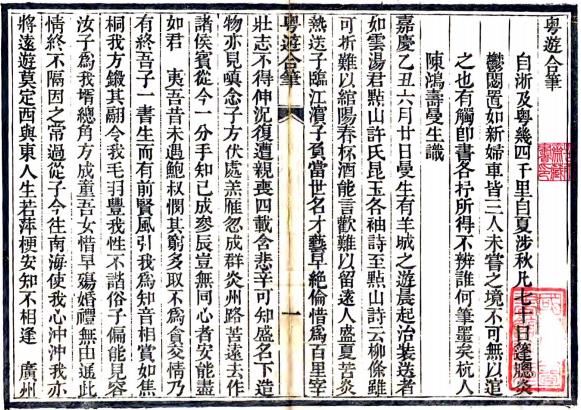 粵遊合筆
自淅及粵幾四千里自夏涉秋凡七十日蓬牕炎
鬱闇置如新婦車皆三人未嘗之境不可無以道
之也有觸卽書各抒所得不辨誰何筆墨矣杭人
陳鴻壽曼生識
嘉慶乙丑六月廿日曼生有羊城之遊晨起治裝送者
如雲湯君點山許氏昆玉各袖詩至點山詩云柳條雖
可折難以綰陽春杯酒能言歡難以留遠人盛夏苦炎
熱送子臨江濱子負當世名才藝早絶倫惜爲百里宰
粵遊合筆
一
壯志不得伸況復遭親喪四載含悲辛可知盛名下造
物亦見嗔念子方伏處羔雁忽成群炎州路苦遠去作
諸侯賓從今一分手知已成參辰豈無同心者安能盡
如君　夷吾昔未遇鮑叔憫其窮多取不爲貪交情乃
有終吾子一書生而有前賢風引我爲知音相賞如焦
桐我方鎩其翮令我毛羽豐我性不諧俗子偏能見容
汝子爲我壻總角方成童吾女惜早殤婚禮無由通此
情終不隔因之常過從子今往南海使我心沖沖我亦
將遠遊莫定西與東人生若萍梗安知不相逢　廣州